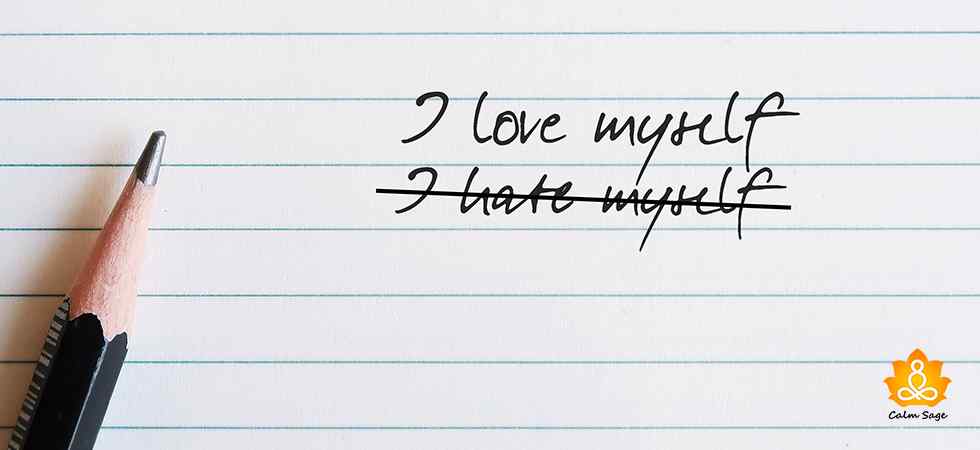 I love myself
I hate myself
Calm Sage